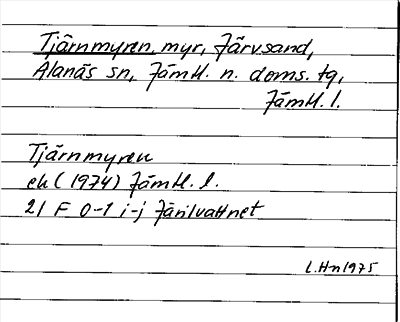 Tjärnmyren myr, Järvsand,
Alanäs sn, Jämtl. n. doms. tg,
Jämtl. l.
Tjärnmyren
ek (1974) Jämtl. l.
21 F 0-1 i-j Järilvattnet
L.Hn 1975